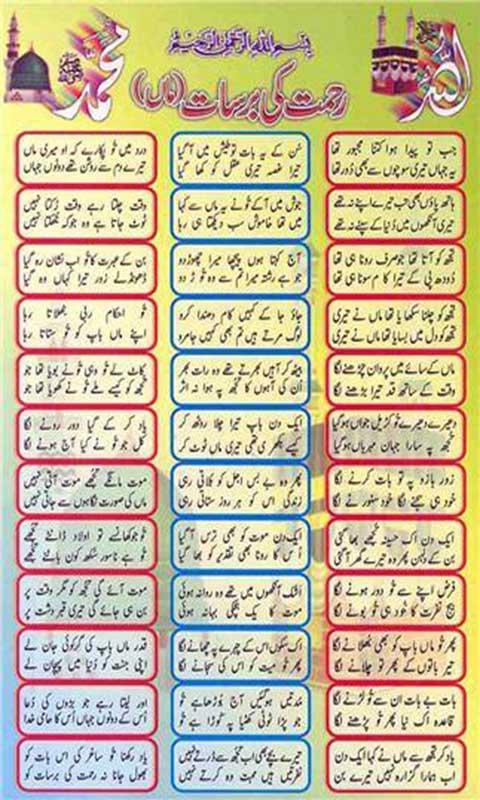 بسم اللہ الرحمن الرحیم
اللہ
محمد
رحمت کی برسات (ماں)
جب تو پیدا ہوا کتنا مجبور تھا
یہ جہاں تیری سوچوں سے بھی دُور تھا
ہاتھ پاؤں بھی تب تیرے اپنے نہ تھے
تیری آنکھوں میں دُنیا کے سپنے نہ تھے
تجھ کو آتا تھا جو صرف رونا ہی تھا
دُودھ پی کے تیرا کام سونا ہی تھا
تجھ کو چلنا سکھایا تھا ماں نے تیری
تجھ کو دل میں بسایا تھا ماں نے تیری
ماں کے سائے میں پروان چڑھنے لگا
وقت کے ساتھ قد تیرا بڑھنے لگا
دھیرے دھیرے تو کڑیل جواں ہو گیا
تجھ پہ سارا جہان مہرباں ہو گیا
زور بازو پہ تو بات کرنے لگا
خود ہی سجنے لگا خود سنورنے لگا
ایک دن اک حسینہ تجھے بھا گئی
بن کے دلہن پھر وہ تیرے گھر آ گئی
فرض اپنے سے تو دور ہونے لگا
بیج نفرت کا خود ہی تو بونے لگا
پھر تو ماں باپ کو بھی بھلانے لگا
تیر باتوں کے پھر تو چلانے لگا
بات بے بات ان سے تو لڑنے لگا
قاعدہ اک نیا پھر تو پڑھنے لگا
یاد کر تجھ سے ماں نے کہا ایک دن
اب ہمارا گزارہ نہیں تیرے بن
سُن کے یہ بات تو طیش میں آ گیا
تیرا غصہ تیری عقل کو کھا گیا
جوش میں آ کے تو نے یہ ماں سے کہا
میں تھا خاموش سب دیکھتا ہی رہا
آج کہتا ہوں پیچھا میرا چھوڑ دو
جو ہے رشتہ میرا تم سے وہ توڑ دو
جاؤ جا کے کہیں کام دھندا کرو
لوگ مرتے ہیں تم بھی کہیں جا مرو
بیٹھ کر آہیں بھرتے تھے وہ رات بھر
اُن کی آہوں کا تجھ پہ ہوا نہ اثر
ایک دن باپ تیرا چلا روٹھ کر
کیسے بکھری تھی تیری ماں ٹوٹ کر
پھر وہ بے بس اجل کو بُلاتی رہی
زندگی اس کو ہر روز ستاتی رہی
ایک دن موت کو بھی ترس آ گیا
اُس کا رونا بھی تقدیر کو بھا گیا
اشک آنکھوں میں تھے وہ روانہ ہوئی
موت کا یک ہچکی بہانہ ہوئی
اک سکوں اس کے چہرے پہ چھانے لگا
پھر تو میت کو اس کی سجانے لگا
مدتیں ہو گئیں آج بوڑھا ہے تو
جو پڑا ٹوٹی کھٹیا پہ کوڑا ہے تو
تیرے بچے بھی اب تجھ سے ڈرتے نہیں
نفرتیں ہیں محبت وہ کرتے نہیں
درد میں تو پکارے کہ او میری ماں
تیرے دم سے روشن تھے دونوں جہاں
وقت چلتا رہے وقت رُکتا نہیں
ٹوٹ جاتا ہے وہ جو کہ جھکتا نہیں
بن کے عبرت کا تو اب نشاں رہ گیا
ڈھونڈ لے زور تیرا کہاں رہ گیا
تو احکام ربی بھلاتا رہا
اپنے ماں باپ کو تو ستاتا رہا
کاٹ لے تو وہی تو نے بویا تھا جو
تجھ کو کیسے ملے تو نے کھویا تھا جو
یاد کر کے گیا دور رونے لگا
کل جو تو نے کیا آج ہونے لگا
موت مانگے تجھے موت آتی نہیں
ماں کی صورت نگاہوں سے جاتی نہیں
تو جو کھانسے تو اولاد ڈانٹے تجھے
تو ہے ناسور سکھ کون بانٹے تجھے
موت آئے گی تجھ کو مگر وقت پر
بن ہی جائے گی تیری قبر وقت پر
قدر ماں باپ کی گر کوئی جان لے
اپنی جنت کو دُنیا میں پہچان لے
اور لیتا رہے جو بڑوں کی دُعا
اُس کے دونوں جہاں اُس کا حامی خدا
یاد رکھنا تو ساغر کی اس بات کو
بھول جانا نہ رحمت کی برسات کو